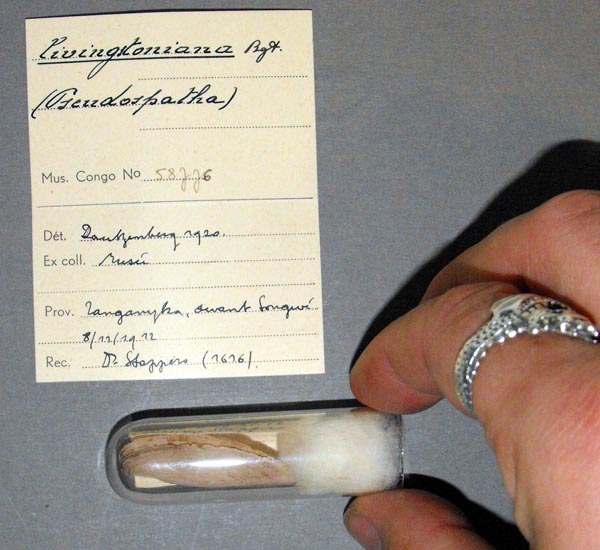 Livingstoniana Bgt.
(Pseudospatha)
Mus. Congo No 58776
Dét. Dautzenberg 1920.
Ex coll. Musée
Prov. Tanganyka, devant Songwé
8/11/1912
Rec. Dr Stappers (1616).